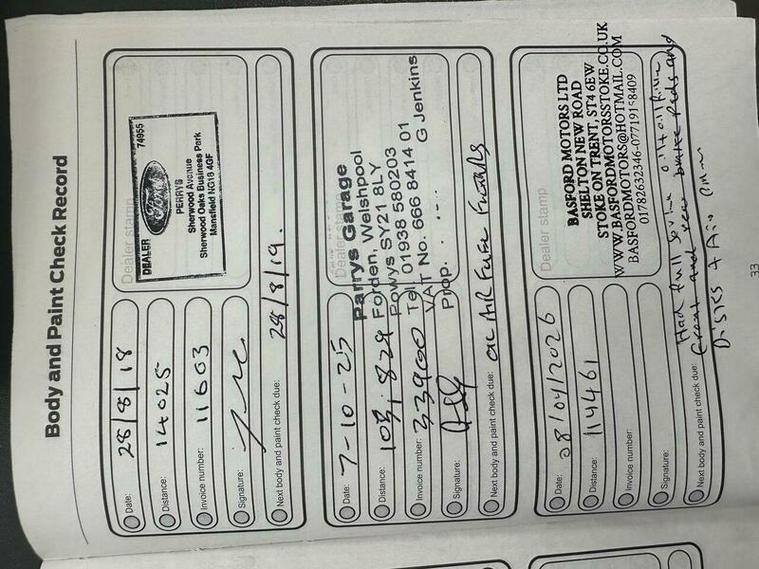 Body and Paint Check Record
Date: 28/8/18
Distance: 14025
Invoice number: 11603
Signature:
Next body and paint check due: 28/8/19.
Dealer stamp
DEALER
74955
Ford
PERRYS
Sherwood Avenue
Sherwood Oaks Business Park
Mansfield NG18 4GF
Date: 7-10-25
Distance: 103,829
Invoice number: 33960
Signature:
Next body and paint check due: OIL AIR FUEL
Dealer stamp
Parrys Garage
Forden, Welshpool
Powys SY21 8LY
Tel. 01938 580203
VAT No. 666 8414 01
Prop. G Jenkins
Date: 08/04/2026
Distance: 114461
Invoice number:
Signature:
Next body and paint check due:
Dealer stamp
BASFORD MOTORS LTD
SHELTON NEW ROAD
STOKE ON TRENT, ST4 6EW
WWW.BASFORDMOTORSSTOKE.CO.UK
BASFORDMOTORS@HOTMAIL.COM
01782632346-07719158409
Had full oil + oil
front and rear brake Pads and
Disks + Air
33